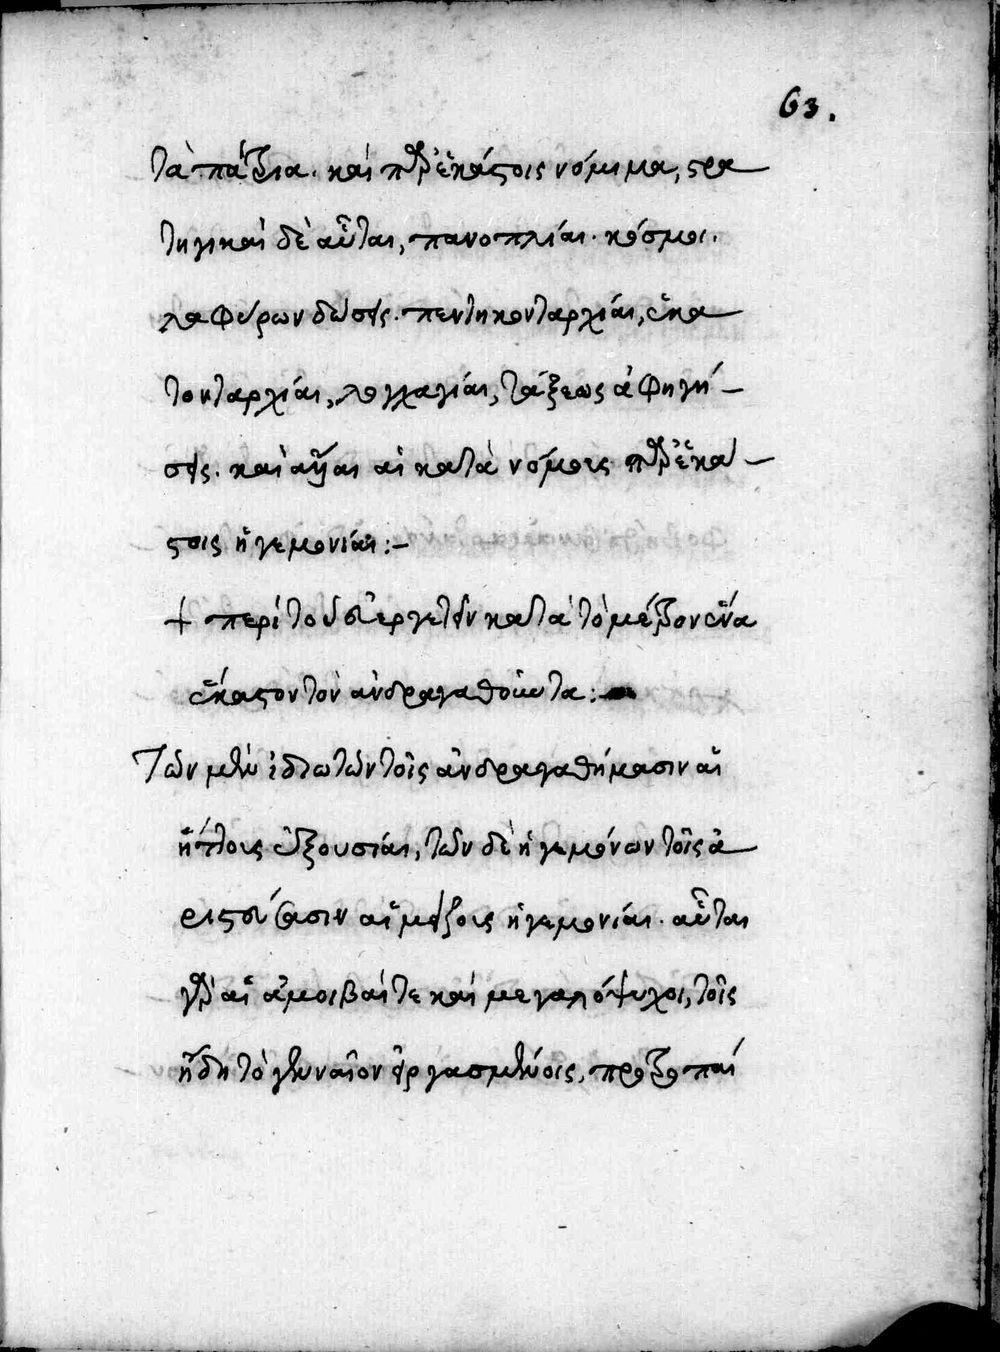 63.
τὰ πάτρια. καὶ παρ' ἑκάστοις νόμιμα, στρα
τηγικαὶ δὲ αὗται, πανοπλίαι. κόσμοι.
λαφύρων δόσεις. πεντηκονταρχίαι, ἑκα
τονταρχίαι, λοχαγίαι, τάξεως ἀφηγή-
σεις. καὶ αὗται αἱ κατὰ νόμους παρ' ἑκά-
στοις ἡγεμονίαι:-
+ περὶ τοῦ εὐεργετεῖν κατὰ τὸ μεῖζον ἕνα
ἕκαστον τὸν ἀνδραγαθοῦντα:-
Τῶν μὲν ἰδιωτῶν τοῖς ἀνδραγαθήμασιν αἱ
ἥττους ἐξουσίαι, τῶν δὲ ἡγεμόνων τοῖς ἀ
ριστεύσασιν αἱ μείζους ἡγεμονίαι. αὗται
γὰρ αἱ ἀμοιβαί τε καὶ μεγαλόψυχοι, τοῖς
ἤδη τὸ γενναῖον εἰργασμένοις, προτροπαί